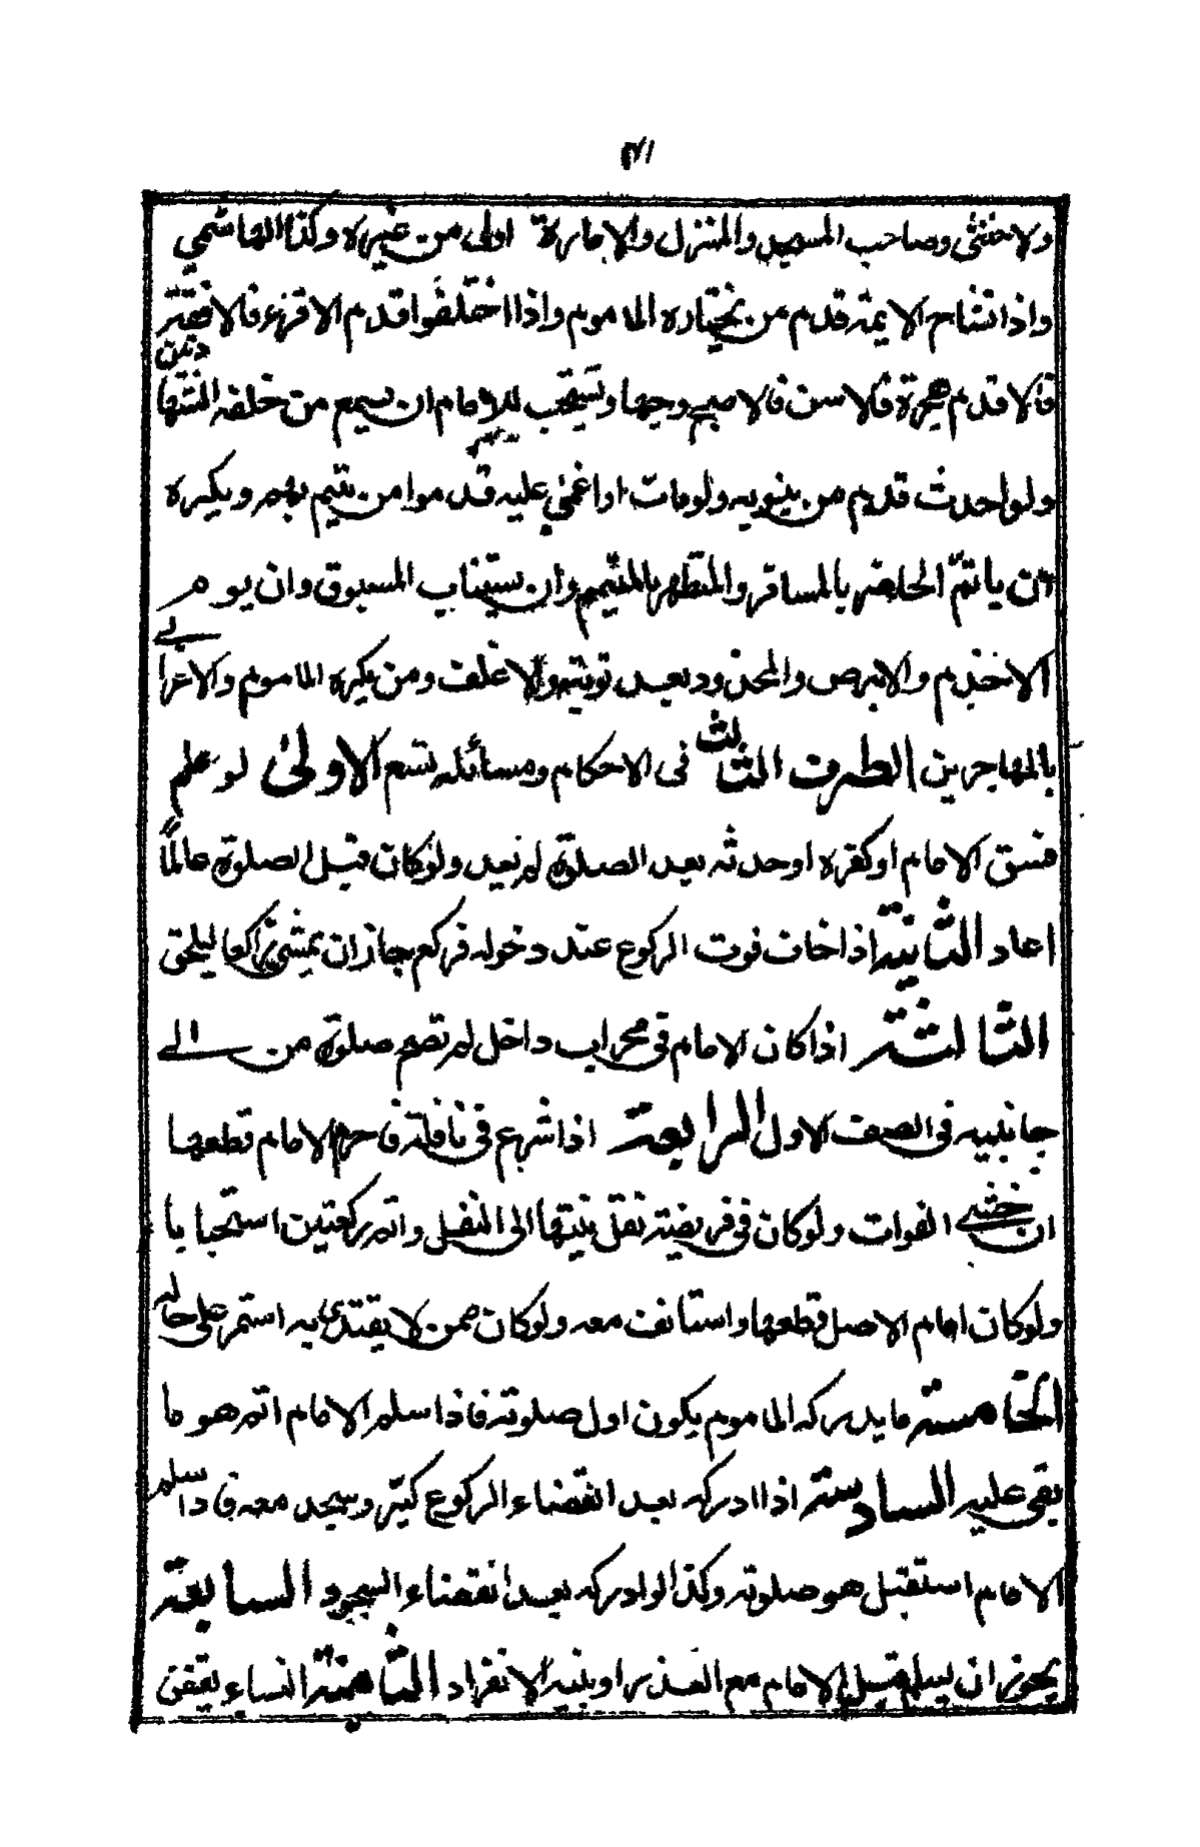 ٤١
ولا خنثى وصاحب المسجد والمنزل والامارة اولى من غيره وكذا الهاشمي
واذا تشاح الائمة قدم من يختاره الماموم واذا اختلفوا قدم الاقرء فالافقه
فالاقدم هجرة فالاسن فالاصبح وجها ويستحب للامام ان يسمع من خلفه الشهادتين
ولو احدث قدم من ينوبه ولو مات او اغمي عليه قدموا من يتم بهم ويكره
ان ياتم الحاضر بالمسافر والمتطهر بالمتيمم وان يستناب المسبوق وان يوم
الاجذم والابرص والمحدود بعد توبته والاغلف ومن يكره الماموم والاعرابي
بالمهاجرين الطرف الثالث فى الاحكام ومسائله تسع الاولى لو علم
فسق الامام او كفره او حدثه بعد الصلوة لم يعد ولو كان قبل الصلوة عالمًا
اعاد الثانية اذا خاف فوت الركوع عند دخوله فركع جاز ان يمشى راكعا ليلحق
الثالثة اذا كان الامام فى محراب داخل لم تصح صلوة من الى
جانبيه فى الصف الاول الرابعة اذا شرع فى نافلة فاحرم الامام قطعها
ان خشي الفوات ولو كان فى فريضة نقل نيتها الى النفل واتم ركعتين استحبابا
ولو كان امام الاصل قطعها واستانف معه ولو كان ممن لا يقتدى به استمر على حاله
الخامسة ما يدركه الماموم يكون اول صلوته فاذا سلم الامام اتم هو ما
بقى عليه السادسة اذا ادركه بعد انقضاء الركوع كبّر وسجد معه فاذا سلم
الامام استقبل هو صلوته وكذا لو ادركه بعد انقضاء السجود السابعة
يجوز ان يسلم قبل الامام مع العذر او بنية الانفراد الثامنة النساء يقفن